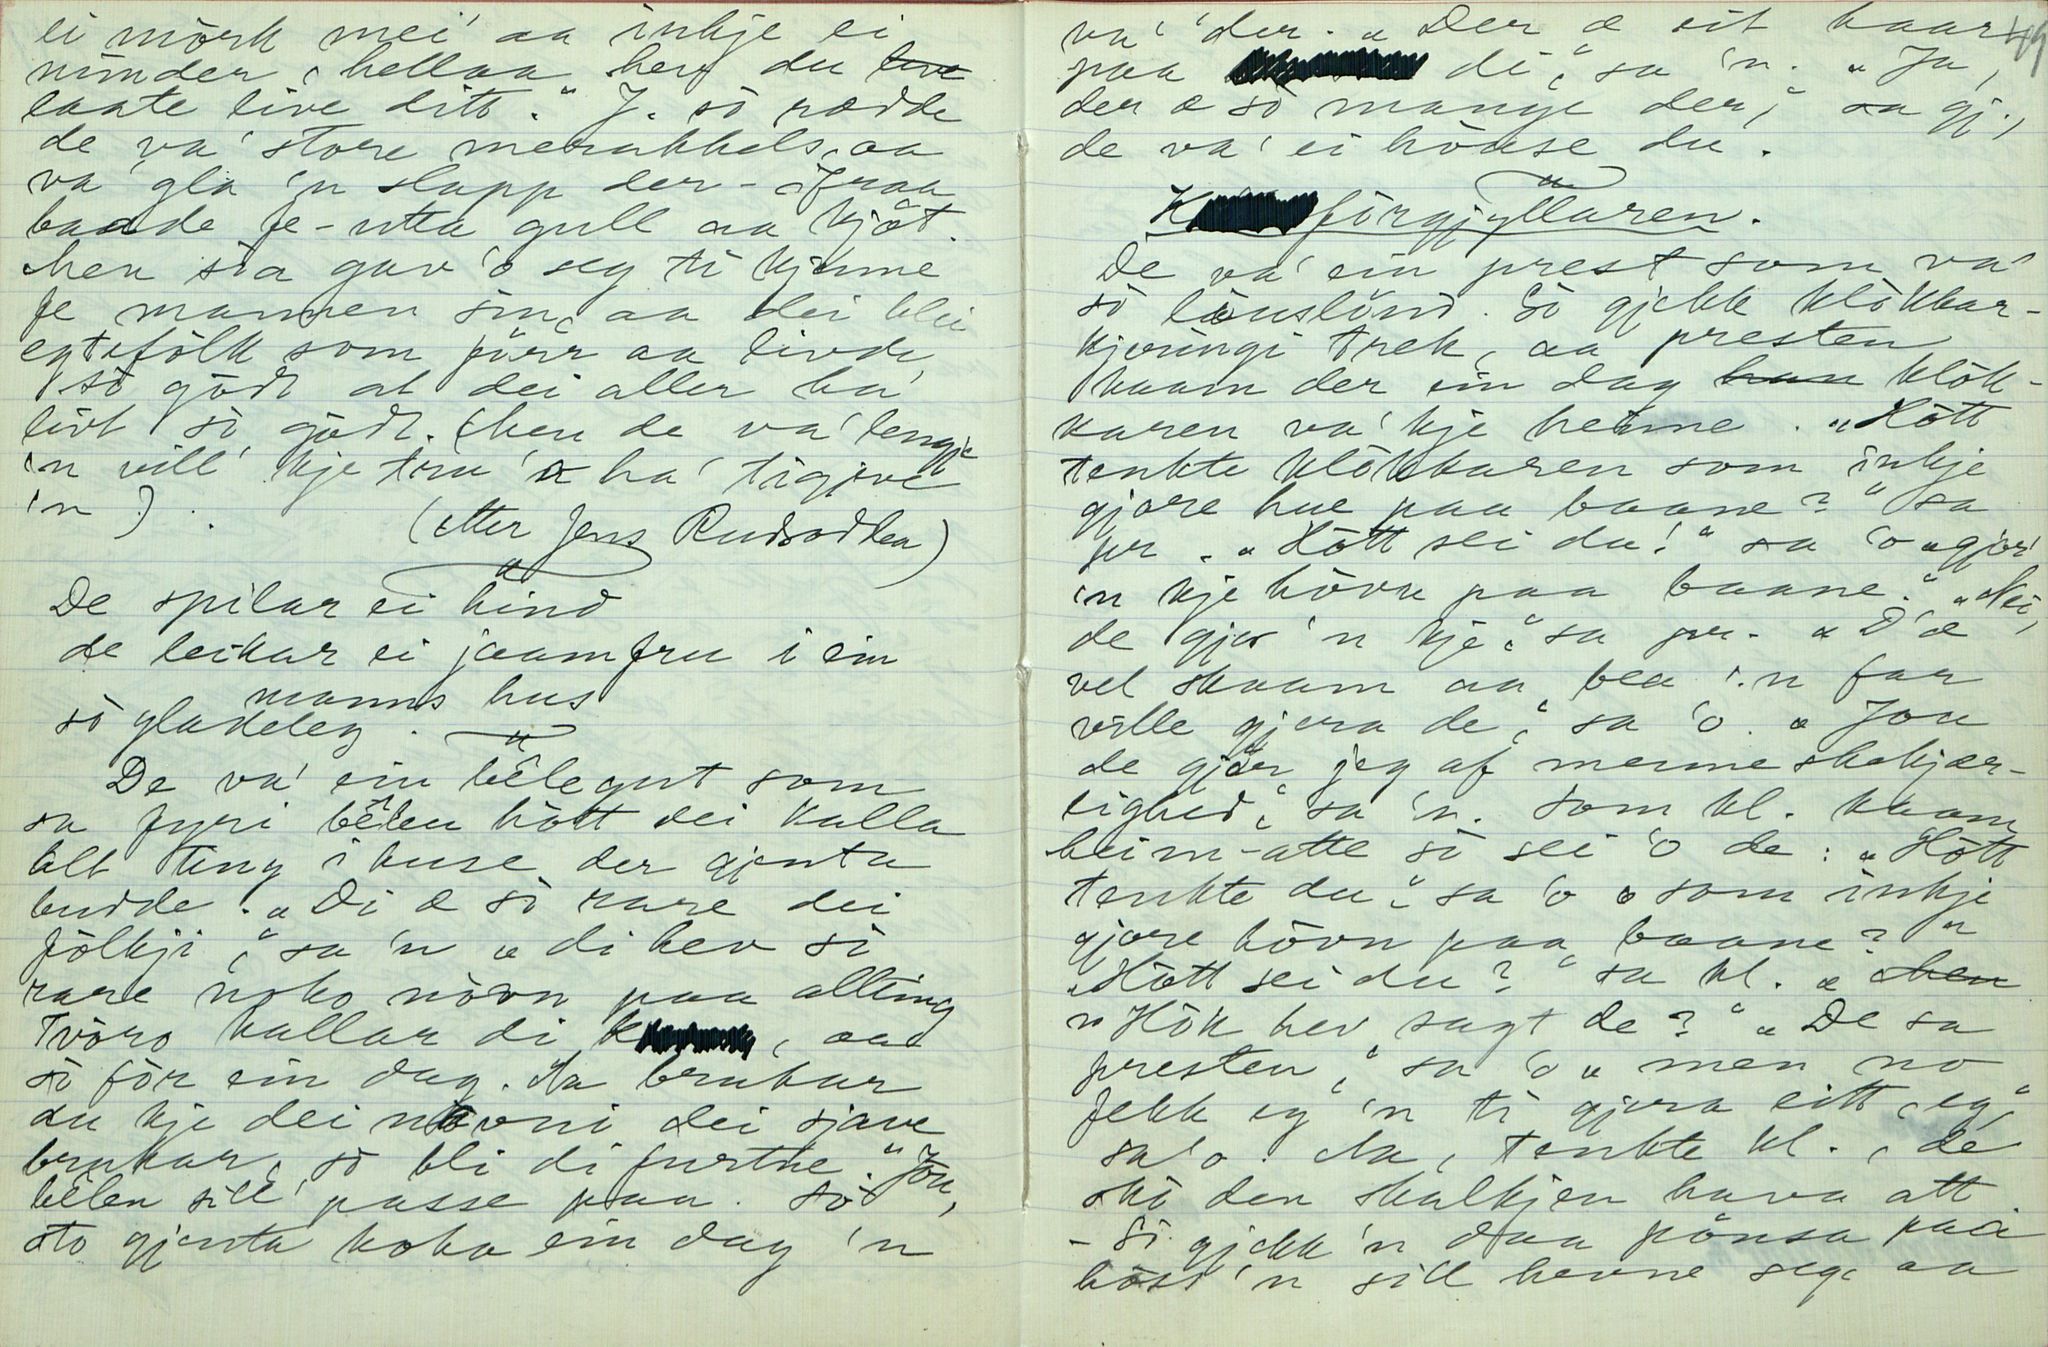 ei mörk mei' aa inkje ei
minder, hellaa hev du live
laate live ditt." J. sö rædde
de va' store merakkels, aa
va' gla 'n slapp der-ifraa
baade fe-utta gull aa kjöt.
Men sia gav 'o seg ti kjenne
fe mannen sin, aa dei blei
egtefölk som förr aa livde
sö gödt at dei aller ha'
livt sö gödt. (Men de va' lengje
'n vill' kje tru 'o ha' tigjeve
'n).
(etter Jens Rudsodden)
De spilar ei hind
de leikar ei jaamfru i ein
manns hus
sö gladeleg.
De va' ein bêlegut som
sa fyri bêlen hött dei kalla
allt ting i huse der gjenta
budde. "Di æ sö rare dei
fölkji," sa 'n "di hev sö
rare noko növn paa allting
Tvöro kallar di k, aa
sö för ein dag. Aa brukar
du kje dei növni dei sjave
brukar, sö bli di furtne." Jou,
bêlen sill' passe paa. Sö
sto gjenta koka ein dag 'n
va' der. "Der æ eit haar
49
paa di," sa 'n. "Ja,
der æ sö mange der," sa gj.,
de va' ei böuse du.
K förgjyllaren.
De va' ein prest som va'
sö löuslönd. Sö gjekk klökkar-
kjeringi trek, aa presten
kaam der ein dag han klök-
karen va' kje heime. "Hött
tenkte klökkaren som inkje
gjore hue paa baane?" sa
pr. "Hött sei du!" sa 'o "gjor'
'n kje hövu paa baane." "Nei,
de gjor 'n kje," sa pr. "D'æ
vel skaam aa bea 'n far
ville gjera de," sa 'o. "Jou
de gjör jeg af menneskekjær-
lighed," sa 'n. Som kl. kaam
heim-atte sö sei 'o de: "Hött
tenkte du," sa 'o "som inkje
gjore hövu paa baane?"
"Hött sei du?" sa kl. "Men
"Hökk hev sagt de?" "De sa
presten," sa 'o "men no
fekk eg 'n ti gjera eitt, eg,"
sa 'o. Aa, tenkte kl., de
skö den skalkjen hava att
- Sö gjekk 'n daa pönsa paa
höss 'n sill hevne seg, aa